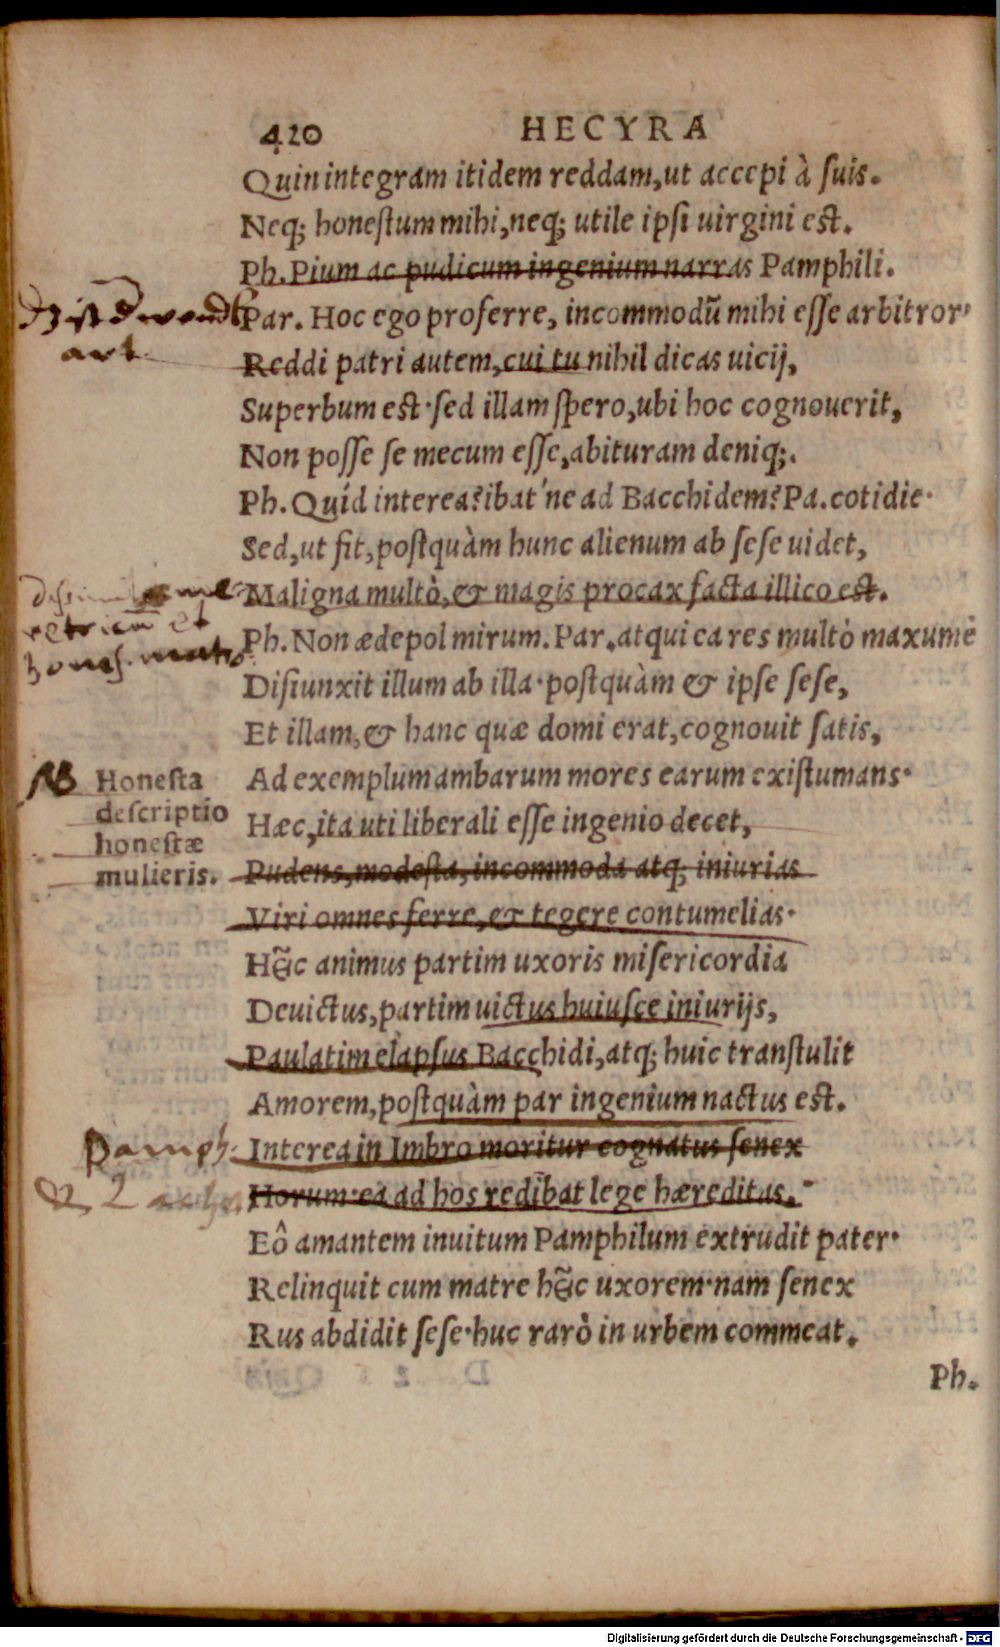 420 HECYRA
Quin integram itidem reddam, ut accepi à ſuis.
Neq; honeſtum mihi, neq; utile ipſi uirgini eſt.
Ph. Pium ac pudicum ingenium narras Pamphili.
Par. Hoc ego proferre, incommodū mihi eſſe arbitror.
Reddi patri autem, cui tu nihil dicas uicij,
Superbum eſt. ſed illam ſpero, ubi hoc cognouerit,
Non poſſe ſe mecum eſſe, abituram deniq;.
Ph. Quíd interea? ibat'ne ad Bacchidem? Pa. cotidie.
Sed, ut fit, poſtquàm hunc alienum ab ſeſe uidet,
Maligna multò, & magis procax facta illico eſt.
Ph. Non ædepol mirum. Par. atqui ea res multò maxumè
Diſiunxit illum ab illa. poſtquàm & ipſe ſeſe,
Et illam, & hanc quæ domi erat, cognouit ſatis,
NB Honeſta
deſcriptio
honeſtæ
mulieris.
Ad exemplum ambarum mores earum exiſtumans.
Hæc, ita uti liberali eſſe ingenio decet,
Pudens, modeſta, incommoda atq; iniurias
Viri omnes ferre, & tegere contumelias.
Hęc animus partim uxoris miſericordia
Deuictus, partim uictus huiuſce iniurijs,
Paulatim elapſus Bacchidi, atq; huic tranſtulit
Amorem, poſtquàm par ingenium nactus eſt.
Pamph.
Interea in Imbro moritur cognatus ſenex
Horum. ea ad hos redibat lege hæreditas.
Eô amantem inuitum Pamphilum extrudit pater.
Relinquit cum matre hęc uxorem. nam ſenex
Rus abdidit ſeſe. huc rarò in urbem commeat.
Ph.
Digitalisierung gefördert durch die Deutsche Forschungsgemeinschaft - DFG